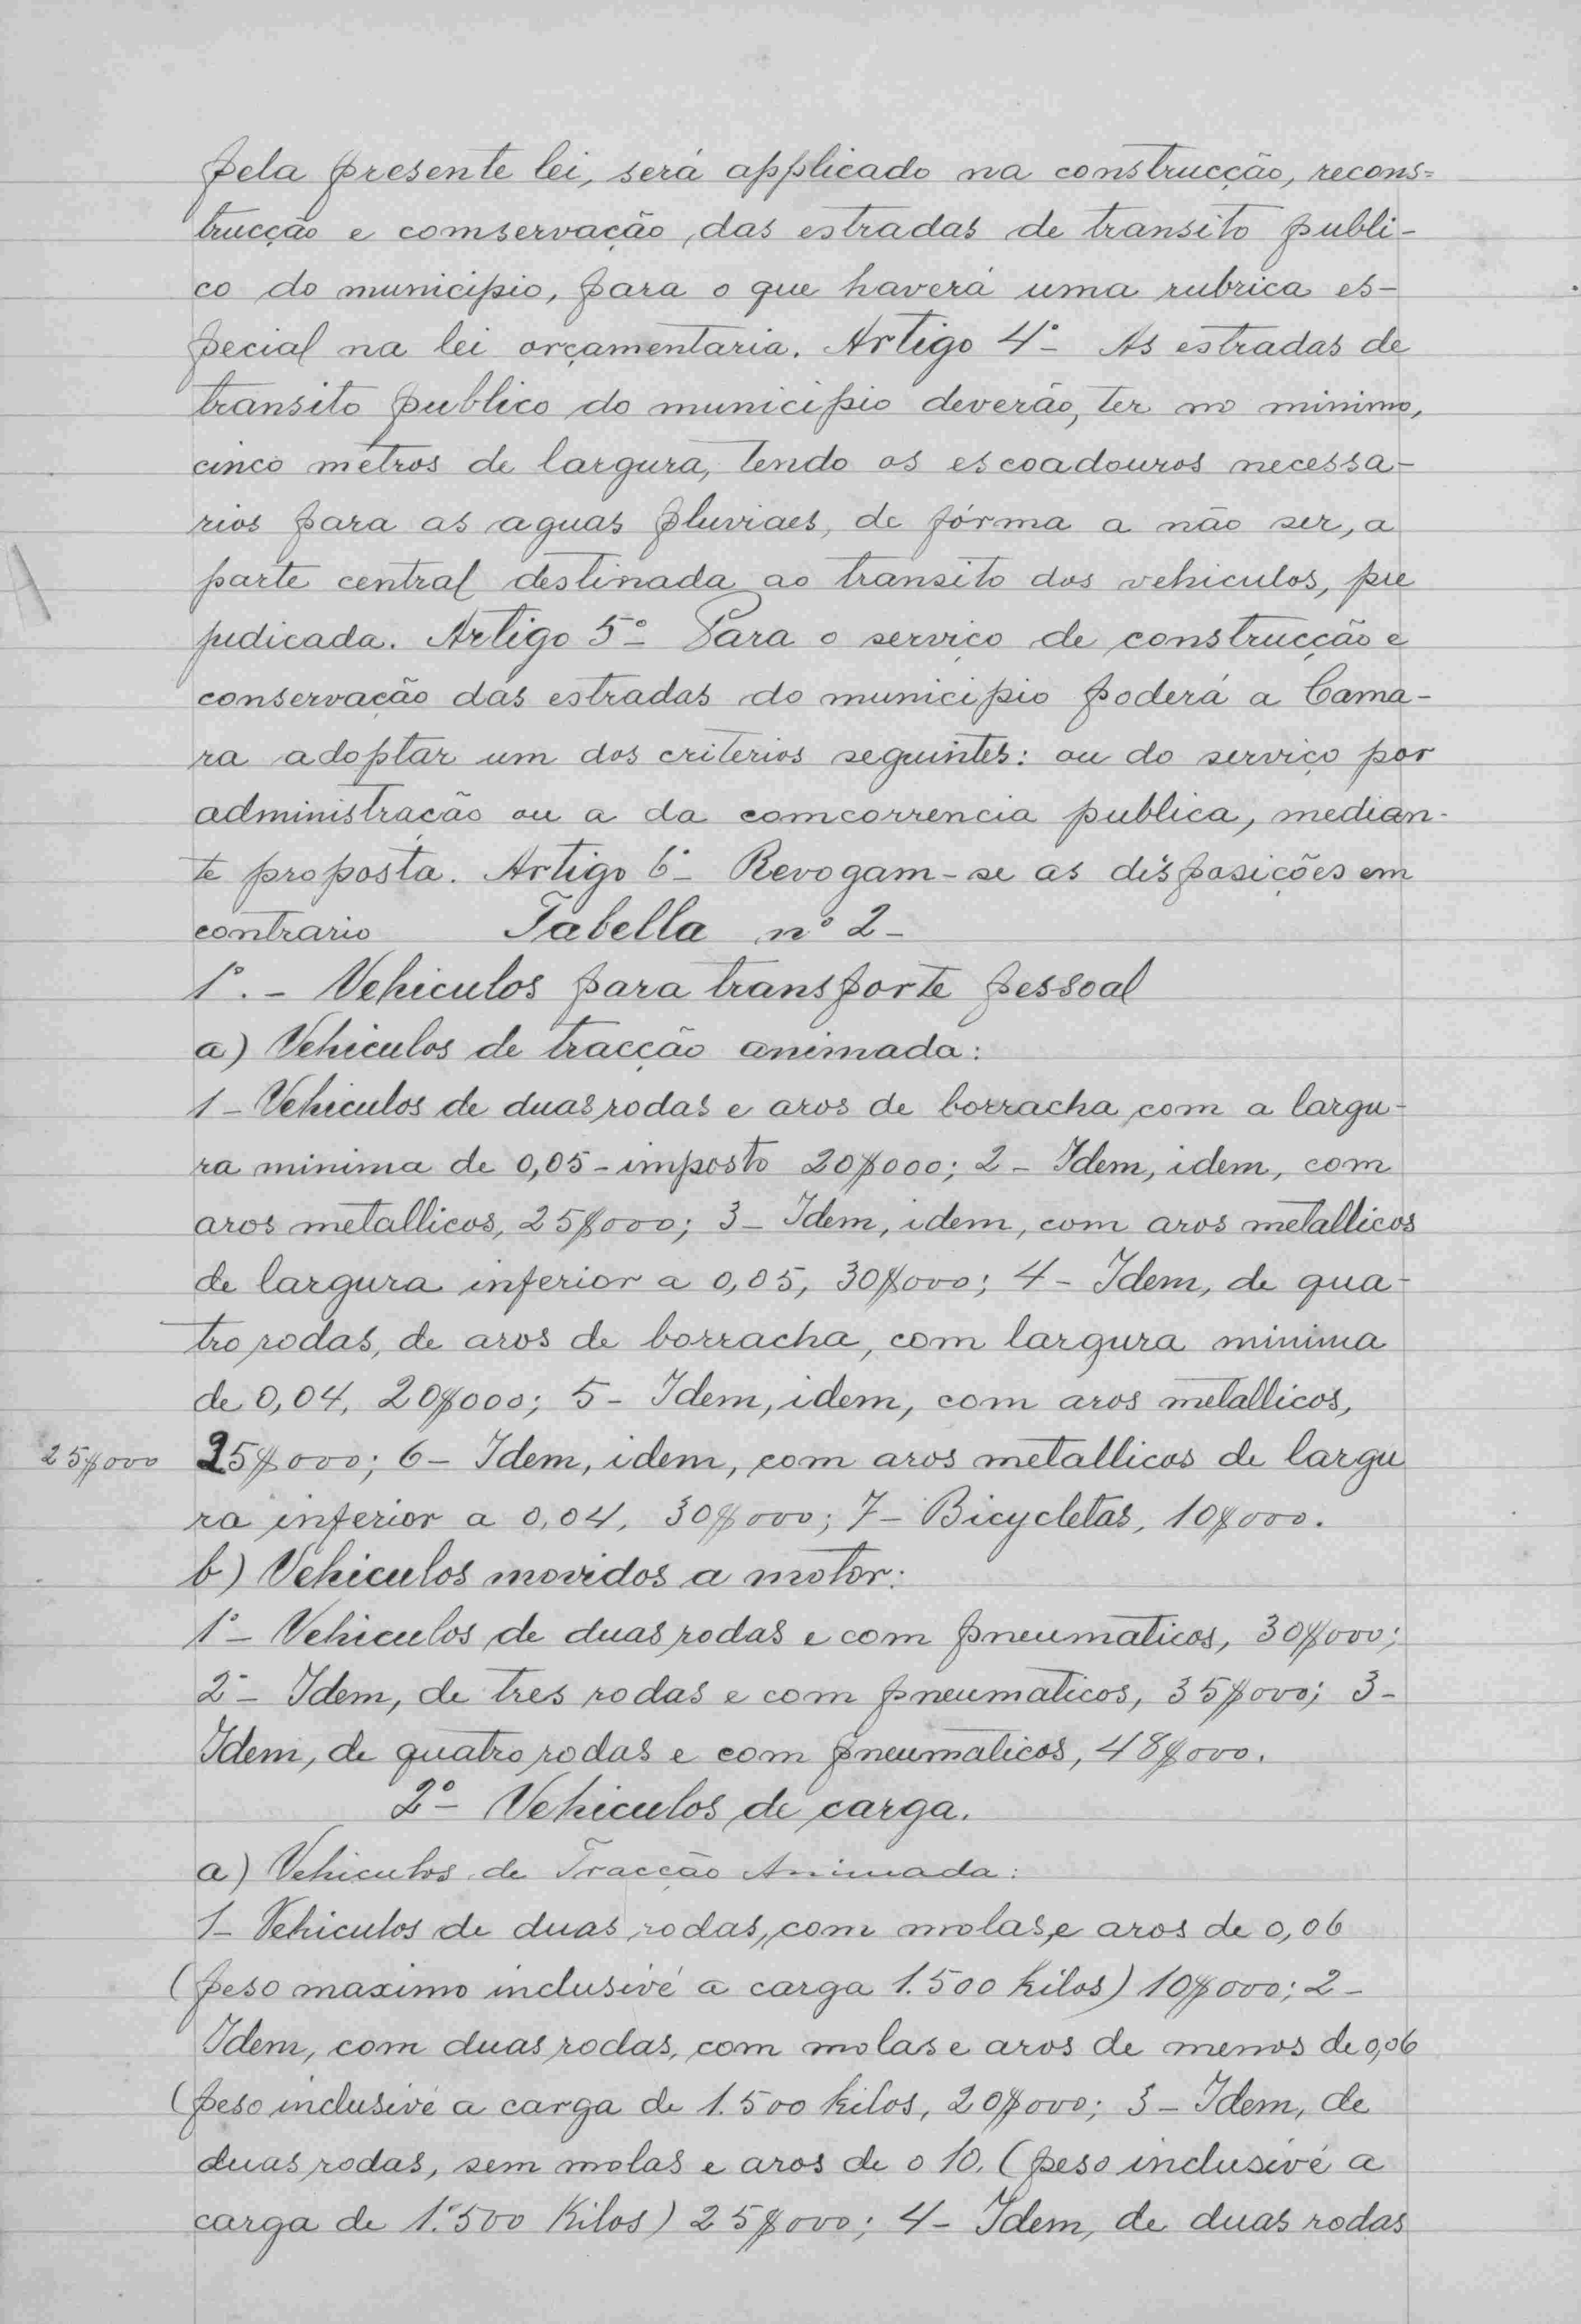 pela presente lei, será applicado na construcção, recons=
trucção e comservação, das estradas de transito publi-
co do municipio, para o que haverá uma rubrica es-
pecial na lei orçamentaria. Artigo 4º- As estradas de
transito publico do municipio deverão, ter no minimo,
cinco metros de largura, tendo os escoadouros necessa-
rios para as aguas pluviaes, de fórma a não ser, a
parte central destinada ao transito dos vehiculos, pre
judicada. Artigo 5º- Para o serviço de construcção e
conservação das estradas do municipio poderá a Cama-
ra adoptar um dos criterios seguintes: ou do serviço por
administração ou a da comcorrencia publica, median-
te proposta. Artigo 6º- Revogam-se as disposições em
contrario Tabella nº 2-
1º.- Vehiculos para transporte pessoal
a) Vehiculos de tracção animada:
1- Vehiculos de duas rodas e aros de borracha com a largu-
ra minima de 0,05-imposto 20$000; 2- Idem, idem, com
aros metallicos, 25$000; 3- Idem, idem, com aros metallicos
de largura inferior a 0,05, 30$000; 4- Idem, de qua-
tro rodas, de aros de borracha, com largura minima
de 0,04, 20$000; 5- Idem, idem, com aros metallicos,
25$000 25$000; 6- Idem, idem, com aros metallicos de largu
ra inferior a 0,04, 30$000; 7- Bicycletas, 10$000.
b) Vehiculos movidos a motor:
1º- Vehiculos de duas rodas e com pneumaticos, 30$000;
2º- Idem, de tres rodas e com pneumaticos, 35$000; 3-
Idem, de quatro rodas e com pneumaticos, 48$000.
2º- Vehiculos de carga.
a) Vehiculos de Tracção Animada:
1- Vehiculos de duas rodas, com molas, e aros de 0,06
(peso maximo inclusivé a carga 1.500 kilos) 10$000; 2-
Idem, com duas rodas, com molas e aros de menos de 0,06
(peso inclusivé a carga de 1.500 kilos, 20$000; 3- Idem, de
duas rodas, sem molas e aros de 0 10. (peso inclusivé a
carga de 1.500 Kilos) 25$000; 4- Idem, de duas rodas